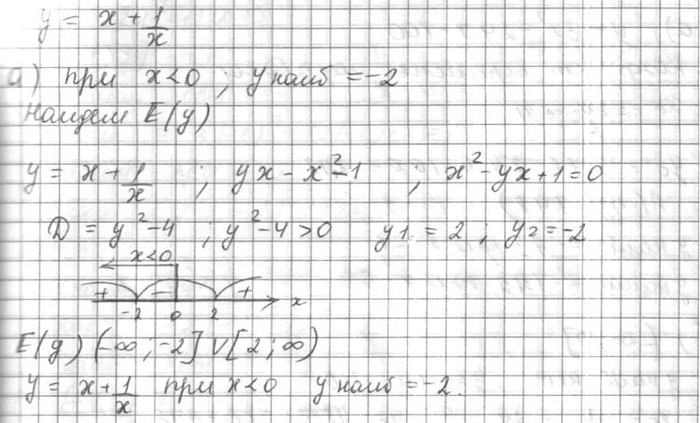 y = x + 1/x
а) при x<0 ; y наиб = -2
Найдем E(y)
y = x + 1/x ; yx - x² - 1 ; x² - yx + 1 = 0
D = y² - 4 ; y² - 4 > 0 y1 = 2 ; y2 = -2
x<0
+ - + x
-2 0 2
E(y) (-∞; -2] ∪ [2; ∞)
y = x + 1/x при x<0 y наиб = -2.